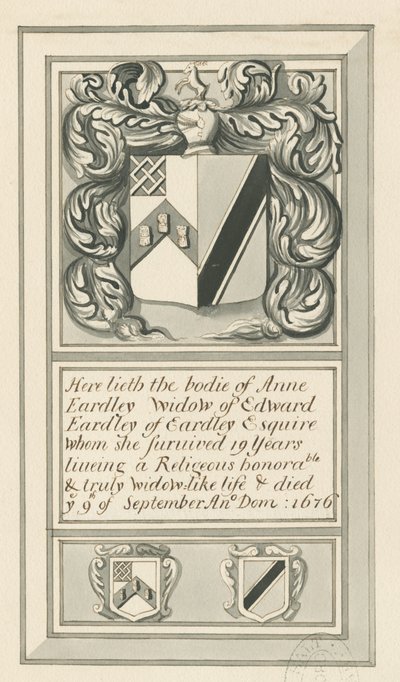 Here lieth the bodie of Anne
Eardley Widow of Edward
Eardley of Eardley Esquire
whom she suruiued 19 Years
liueing a Religeous honorable
& truly widow:like life & died
yͤ 9th of September Anᵒ Dom : 1676